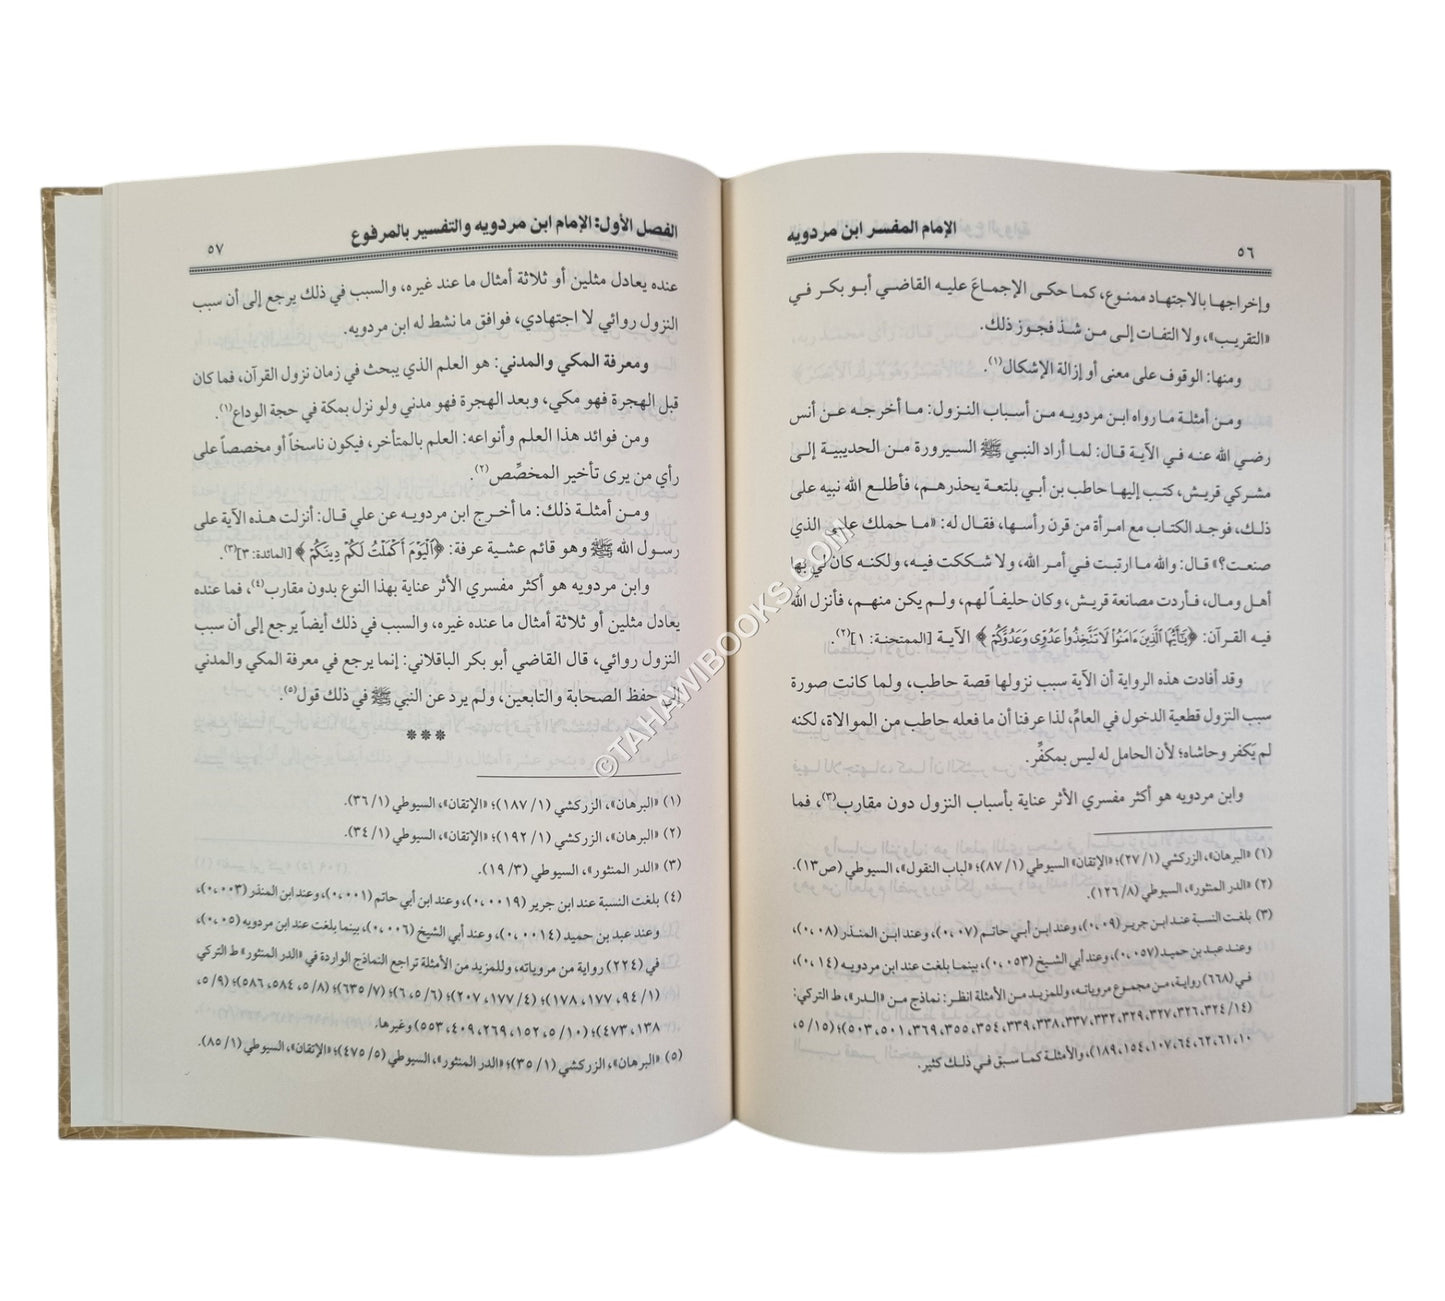 ٥٦
الإمام المفسر ابن مردويه
وإخراجها بالاجتهاد ممنوع، كما حكى الإجماعَ عليه القاضي أبو بكر في
«التقريب»، ولا التفات إلى من شذ فجوز ذلك.
ومنها: الوقوف على معنى أو إزالة الإشكال(١).
ومن أمثلة ما رواه ابن مردويه من أسباب النزول: ما أخرجه عن أنس
رضي الله عنه في الآية قال: لما أراد النبي ﷺ السيرورة من الحديبية إلى
مشركي قريش، كتب إليها حاطب بن أبي بلتعة يحذرهم، فأطلع الله نبيه على
ذلك، فوجد الكتاب مع امرأة من قرن رأسها، فقال له: «ما حملك على الذي
صنعت؟» قال: والله ما ارتبت في أمر الله، ولا شككت فيه، ولكنه كان لي بها
أهل ومال، فأردت مصانعة قريش، وكان حليفاً لهم، ولم يكن منهم، فأنزل الله
فيه القرآن: ﴿يَٰٓأَيُّهَا ٱلَّذِينَ ءَامَنُوا۟ لَا تَتَّخِذُوا۟ عَدُوِّى وَعَدُوَّكُمْ﴾ الآية [الممتحنة: ١](٢).
وقد أفادت هذه الرواية أن الآية سبب نزولها قصة حاطب، ولما كانت صورة
سبب النزول قطعية الدخول في العامّ، لذا عرفنا أن ما فعله حاطب من الموالاة، لكنه
لم يَكفر وحاشاه؛ لأن الحامل له ليس بمكفِّر.
وابن مردويه هو أكثر مفسري الأثر عناية بأسباب النزول دون مقارب(٣)، فما
(١) «البرهان»، الزركشي (١/ ٢٧)؛ «الإتقان» السيوطي (١/ ٨٧)؛ «لباب النقول»، السيوطي (ص١٣).
(٢) «الدر المنثور»، السيوطي (٨/ ١٢٦).
(٣) بلغت النسبة عند ابن جرير (٠،٠٠٩)، وعند ابن أبي حاتم (٠،٠٧)، وعند ابن المنذر (٠،٠٨)،
وعند عبد بن حميد (٠،٠٥٧)، وعند أبي الشيخ (٠،٠٥٣)، بينما بلغت عند ابن مردويه (٠،١٤)،
في (٦٦٨) رواية، من مجموع مروياته، وللمزيد من الأمثلة انظر: نماذج من «الدر»، ط التركي:
(١٤/ ٣٢٤، ٣٢٦، ٣٢٧، ٣٢٩، ٣٣٢، ٣٣٧، ٣٣٨، ٣٣٩، ٣٥٤، ٣٥٥، ٣٦٩، ٥٠١، ٥٠٣)؛ (١٥/ ٥،
١٠، ٦١، ٦٢، ٦٤، ١٠٧، ١٥٤، ١٨٩)، والأمثلة كما سبق في ذلك كثير.
الفصل الأول: الإمام ابن مردويه والتفسير بالمرفوع
٥٧
عنده يعادل مثلين أو ثلاثة أمثال ما عند غيره، والسبب في ذلك يرجع إلى أن سبب
النزول روائي لا اجتهادي، فوافق ما نشط له ابن مردويه.
ومعرفة المكي والمدني: هو العلم الذي يبحث في زمان نزول القرآن، فما كان
قبل الهجرة فهو مكي، وبعد الهجرة فهو مدني ولو نزل بمكة في حجة الوداع(١).
ومن فوائد هذا العلم وأنواعه: العلم بالمتأخر، فيكون ناسخاً أو مخصصاً على
رأي من يرى تأخير المخصِّص(٢).
ومن أمثلة ذلك: ما أخرج ابن مردويه عن علي قال: أنزلت هذه الآية على
رسول الله ﷺ وهو قائم عشية عرفة: ﴿ٱلْيَوْمَ أَكْمَلْتُ لَكُمْ دِينَكُمْ﴾ [المائدة: ٣](٣).
وابن مردويه هو أكثر مفسري الأثر عناية بهذا النوع بدون مقارب(٤)، فما عنده
يعادل مثلين أو ثلاثة أمثال ما عنده غيره، والسبب في ذلك أيضاً يرجع إلى أن سبب
النزول روائي، قال القاضي أبو بكر الباقلاني: إنما يرجع في معرفة المكي والمدني
إلى حفظ الصحابة والتابعين، ولم يرد عن النبي ﷺ في ذلك قول(٥).
***
(١) «البرهان»، الزركشي (١/ ١٨٧)؛ «الإتقان»، السيوطي (١/ ٣٦).
(٢) «البرهان»، الزركشي (١/ ١٩٢)؛ «الإتقان»، السيوطي (١/ ٣٤).
(٣) «الدر المنثور»، السيوطي (٣/ ١٩).
(٤) بلغت النسبة عند ابن جرير (٠،٠٠١٩)، وعند ابن أبي حاتم (٠،٠٠١)، وعند ابن المنذر (٠،٠٠٣)،
وعند عبد بن حميد (٠،٠٠١٤)، وعند أبي الشيخ (٠،٠٠٦)، بينما بلغت عند ابن مردويه (٠،٠٥)،
في (٢٢٤) رواية من مروياته، وللمزيد من الأمثلة تراجع النماذج الواردة في «الدر المنثور» ط التركي
(١/ ٩٤، ١٧٧، ١٧٨)؛ (٤/ ١٧٧، ٢٠٧)؛ (٦/ ٥، ٦)؛ (٧/ ٦٣٥)؛ (٨/ ٥، ٥٨٤، ٥٨٦)؛ (٩/ ٥،
١٣٨، ٤٧٣)؛ (١٠/ ٥، ١٥٢، ٢٦٩، ٤٠٩، ٥٥٣) وغيرها.
(٥) «البرهان»، الزركشي (١/ ٣٥)؛ «الدر المنثور»، السيوطي (٥/ ٤٧٥)؛ «الإتقان»، السيوطي (١/ ٨٥).
©TAHAWIBOOKS.COM